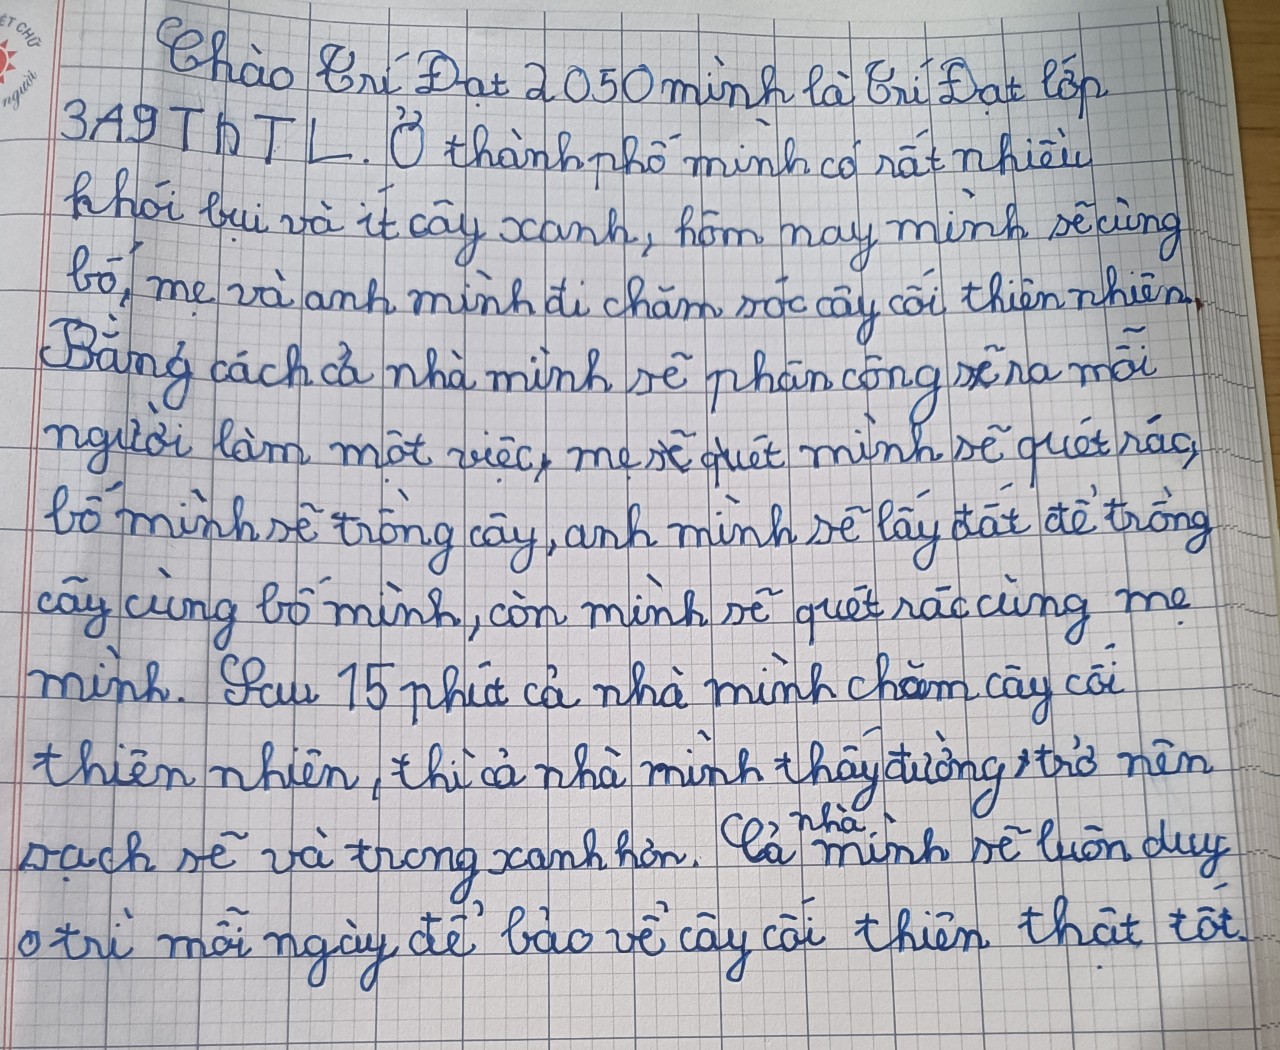 ÉT CHỮ
người
Chào Trí Đạt 2050 mình là Trí Đạt lớp
3A9 ThTL. Ở thành phố mình có rất nhiều
khói bụi và ít cây xanh, hôm nay mình sẽ cùng
bố, mẹ và anh mình đi chăm sóc cây cối thiên nhiên.
Bằng cách cả nhà mình sẽ phân công sẽ ra mỗi
người làm một việc, mẹ sẽ quét mình sẽ quét rác,
bố mình sẽ trồng cây, anh mình sẽ lấy đất để trồng
cây cùng bố mình, còn mình sẽ quét rác cùng mẹ
mình. Sau 15 phút cả nhà mình chăm cây cối
thiên nhiên, thì cả nhà mình thấy đường trở nên
sạch sẽ và trong xanh hơn. Cả nhà mình sẽ luôn duy
trì mỗi ngày để bảo vể cây cối thiên thật tốt.